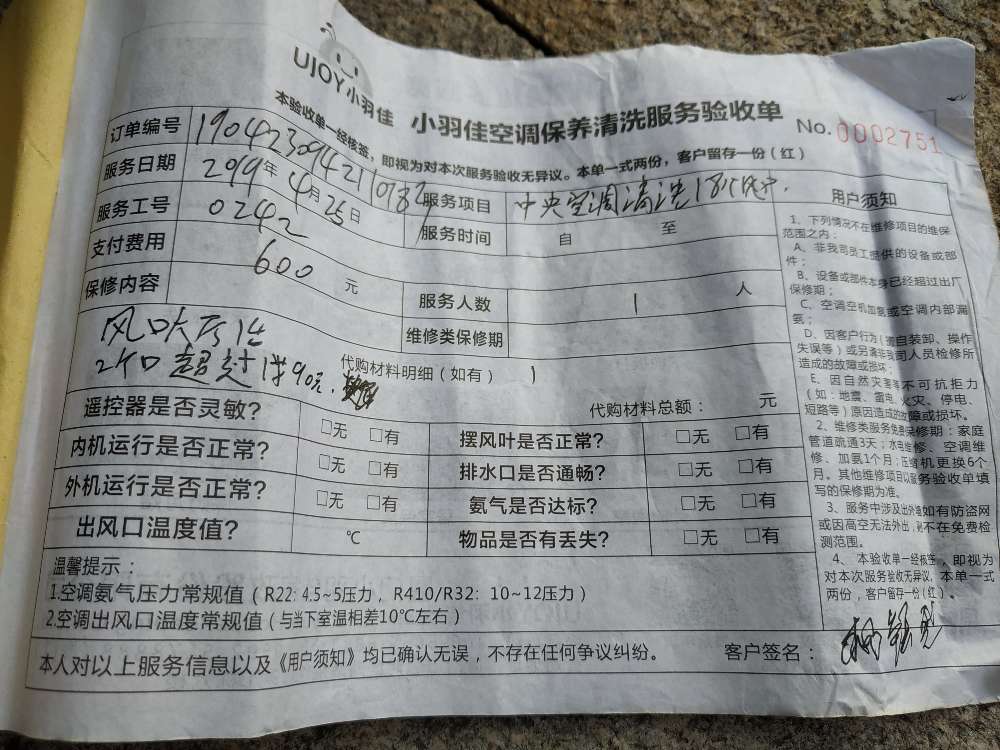 UJOY小羽佳 小羽佳空调保养清洗服务验收单
No. 0002751
本验收单一经核签，即视为对本次服务验收无异议。本单一式两份，客户留存一份（红）
订单编号 服务项目 中央空调清洗
服务日期 年 4月25日 服务时间 自 至
服务工号 0242
支付费用 600 元 服务人数 1 人
保修内容 维修类保修期
风口
超过 90元. 代购材料明细（如有）
代购材料总额： 元
遥控器是否灵敏？ □无 □有 摆风叶是否正常？ □无 □有
内机运行是否正常？ □无 □有 排水口是否通畅？ □无 □有
外机运行是否正常？ □无 □有 氨气是否达标？ □无 □有
出风口温度值？ ℃ 物品是否有丢失？ □无 □有
温馨提示：
1.空调氨气压力常规值（R22: 4.5~5压力，R410/R32：10~12压力）
2.空调出风口温度常规值（与当下室温相差10℃左右）
本人对以上服务信息以及《用户须知》均已确认无误，不存在任何争议纠纷。 客户签名：
用户须知
1、下列情况不在维修项目的维保
范围之内：
A、非我司员工提供的设备或部
件；
B、设备或部件本身已经超过出厂
保修期；
C、空调空机加氨或空调内部漏
氨；
D、因客户行为（擅自装卸、操作
失误等）或另请非我司人员检修所
造成的故障或损坏；
E、因自然灾害等不可抗拒力
（如：地震、雷电、火灾、停电、
短路等）原因造成的故障或损坏。
2、维修类服务免费保修期：家庭
管道疏通3天；水电维修、空调维
修、加氨1个月；压缩机更换6个
月。其他维修项目以服务验收单填
写的保修期为准。
3、服务中涉及出外墙如有防盗网
或因高空无法外出，则不在免费检
测范围。
4、本验收单一经核签，即视为
对本次服务验收无异议，本单一式
两份，客户留存一份（红）。